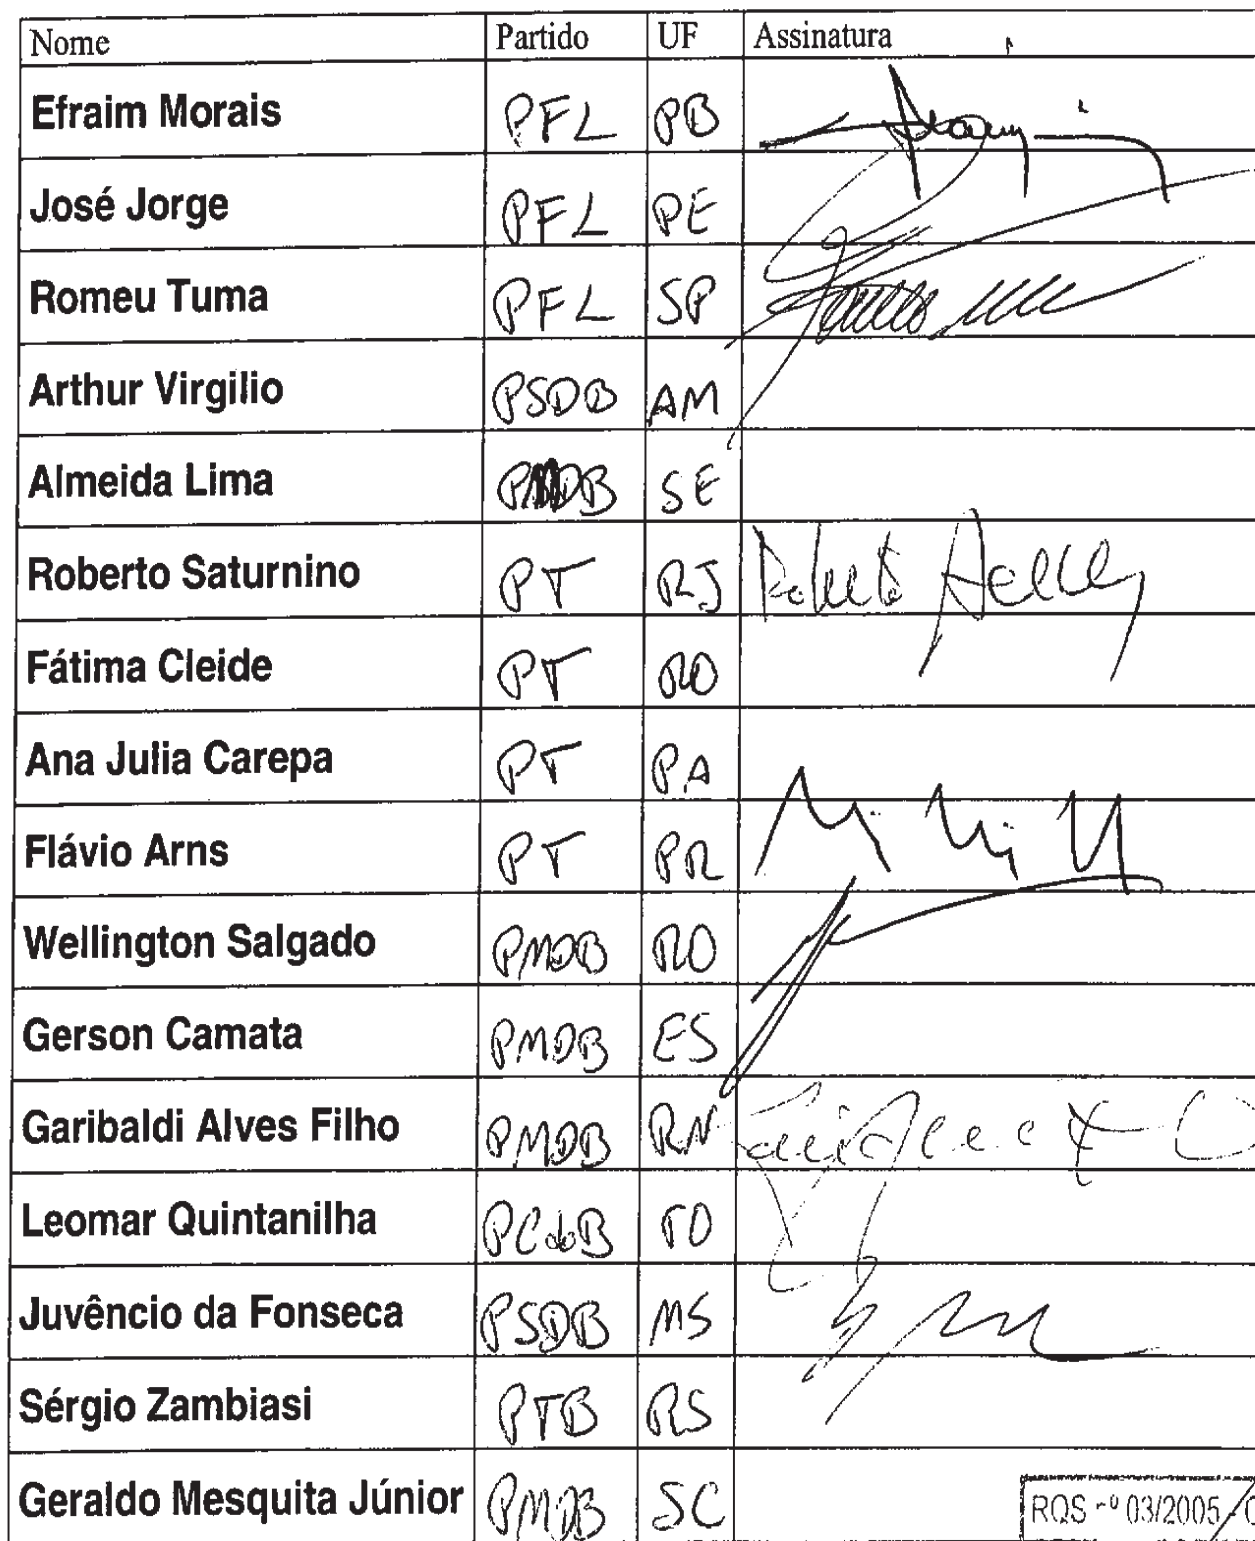 Nome Partido UF Assinatura
Efraim Morais PFL PB
José Jorge PFL PE
Romeu Tuma PFL SP
Arthur Virgilio PSDB AM
Almeida Lima PMDB SE
Roberto Saturnino PT RJ Roberto
Fátima Cleide PT RO
Ana Julia Carepa PT PA
Flávio Arns PT PR
Wellington Salgado PMDB RO
Gerson Camata PMDB ES
Garibaldi Alves Filho PMDB RN
Leomar Quintanilha PCdoB TO
Juvêncio da Fonseca PSDB MS
Sérgio Zambiasi PTB RS
Geraldo Mesquita Júnior PMDB SC
RQS nº 03/2005